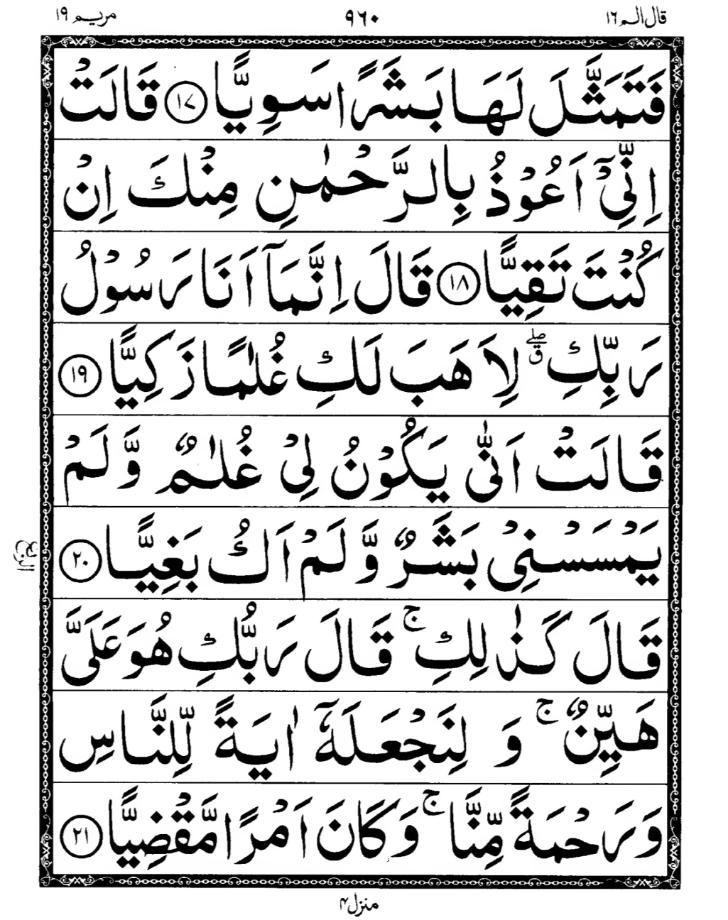 قال الم ١٦ ٩٦٠ مريم ١٩
فَتَمَثَّلَ لَهَا بَشَرًا سَوِيًّا ١٧ قَالَتْ
اِنِّيْۤ اَعُوْذُ بِالرَّحْمٰنِ مِنْكَ اِنْ
كُنْتَ تَقِيًّا ١٨ قَالَ اِنَّمَاۤ اَنَا رَسُوْلُ
رَبِّكِ ۖق لِاَهَبَ لَكِ غُلٰمًا زَكِيًّا ١٩
قَالَتْ اَنّٰى يَكُوْنُ لِيْ غُلٰمٌ وَّ لَمْ
يَمْسَسْنِيْ بَشَرٌ وَّ لَمْ اَكُ بَغِيًّا ٢٠
الربع
قَالَ كَذٰلِكِ ۚ قَالَ رَبُّكِ هُوَ عَلَيَّ
هَيِّنٌ ۚ وَ لِنَجْعَلَهٗۤ اٰيَةً لِّلنَّاسِ
وَ رَحْمَةً مِّنَّا ۚ وَ كَانَ اَمْرًا مَّقْضِيًّا ٢١
منزل ٤